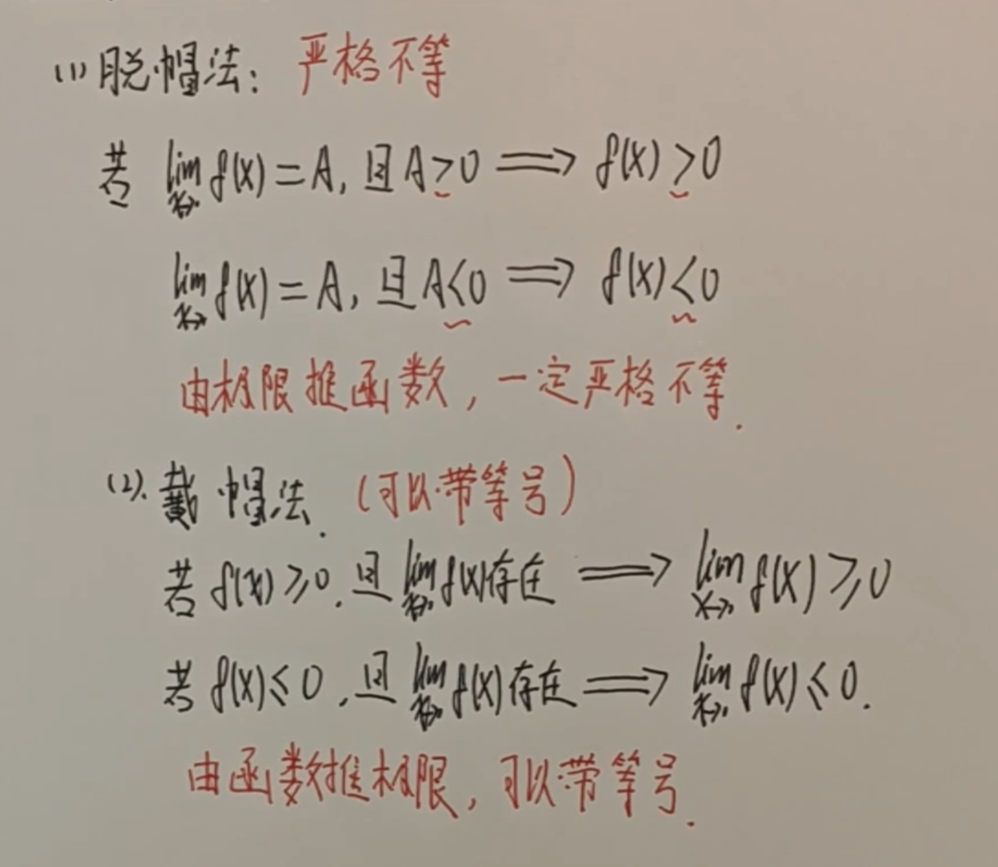 (1) 脱帽法: 严格不等
若 lim f(x)=A, 且A>0 ⟹ f(x)>0
x→·
lim f(x)=A, 且A<0 ⟹ f(x)<0
x→·
由极限推函数, 一定严格不等.
(2). 戴帽法. (可以带等号)
若 f(x)≥0. 且 lim f(x)存在 ⟹ lim f(x)≥0
x→· x→·
若 f(x)≤0, 且 lim f(x)存在 ⟹ lim f(x)≤0.
x→· x→·
由函数推极限, 可以带等号.